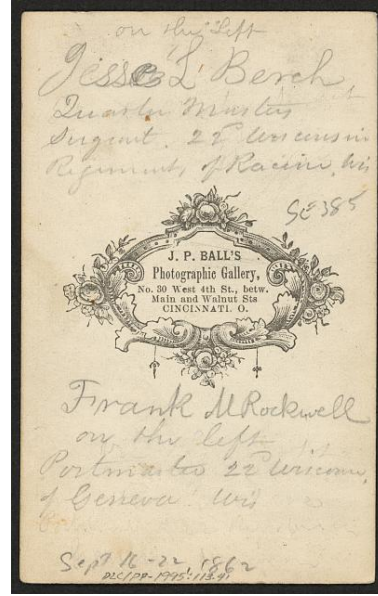 on the left
Jesse L Berch
Quarter Master
Sergeant. 22d Wisconsin
Regiment of Racine, Wis
SE 385
J. P. BALL'S
Photographic Gallery,
No. 30 West 4th St., betw.
Main and Walnut Sts
CINCINNATI. O.
Frank M Rockwell
on the left
Postmaster 22d Wiscon.
of Geneva Wis
Sept 16-22, 1862
DLC/PP-1995:113.91